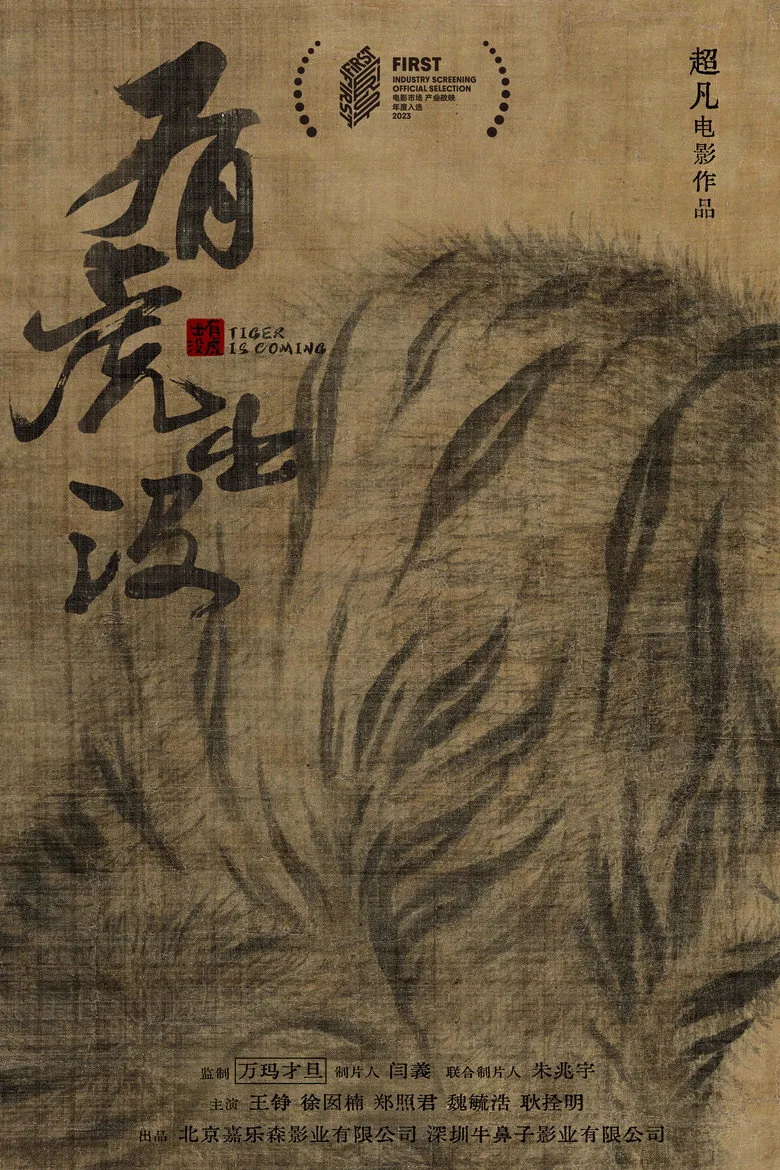 有虎出没
有虎
出没
TIGER
IS COMING
FIRST
FIRST
FIRST
INDUSTRY SCREENING
OFFICIAL SELECTION
电影市场 产业放映
年度入选
2023
超凡电影作品
监制 万玛才旦 制片人 闫義 联合制片人 朱兆宇
主演 王铮 徐囡楠 郑照君 魏毓浩 耿拴明
出品 北京嘉乐森影业有限公司 深圳牛鼻子影业有限公司